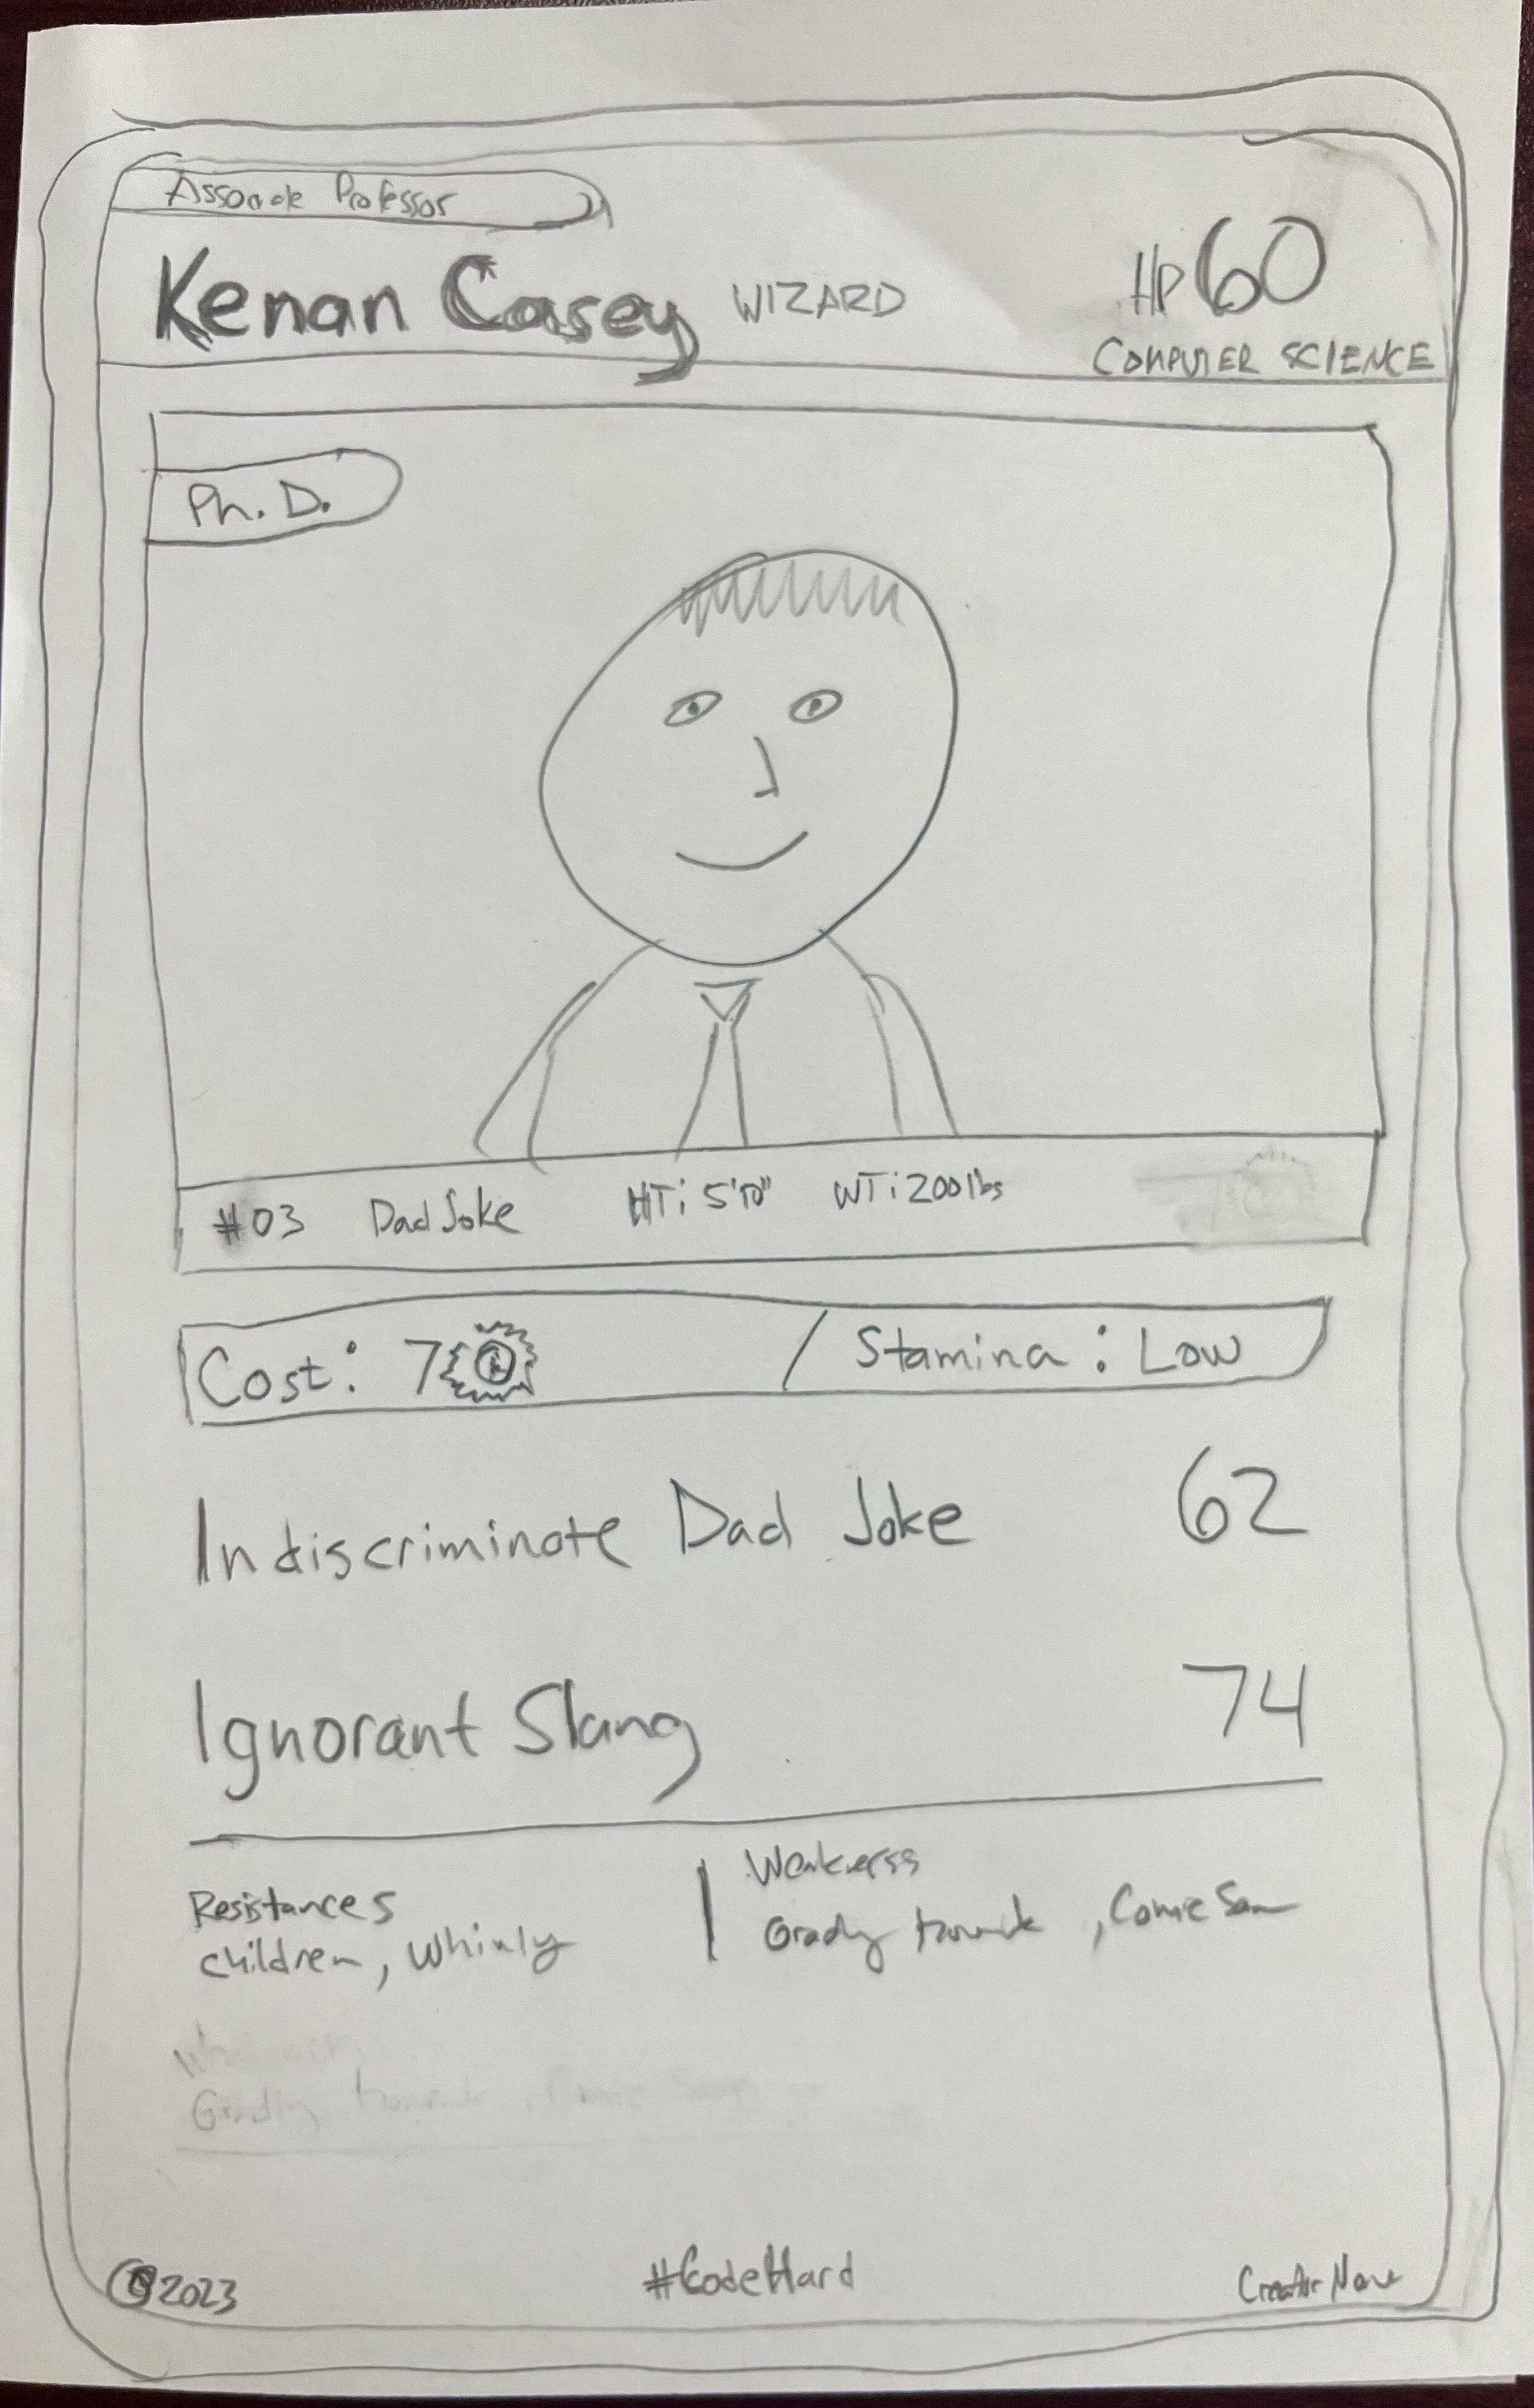 Associate Professor
Kenan Casey WIZARD HP 60
COMPUTER SCIENCE
Ph. D.
#03 Dad Joke HT: 5'10" WT: 200 lbs
Cost: 7 Stamina: Low
Indiscriminate Dad Joke 62
Ignorant Slang 74
Resistances
Children,
Weakness
Grady , Comic San
©2023 #CodeHard Creator Name